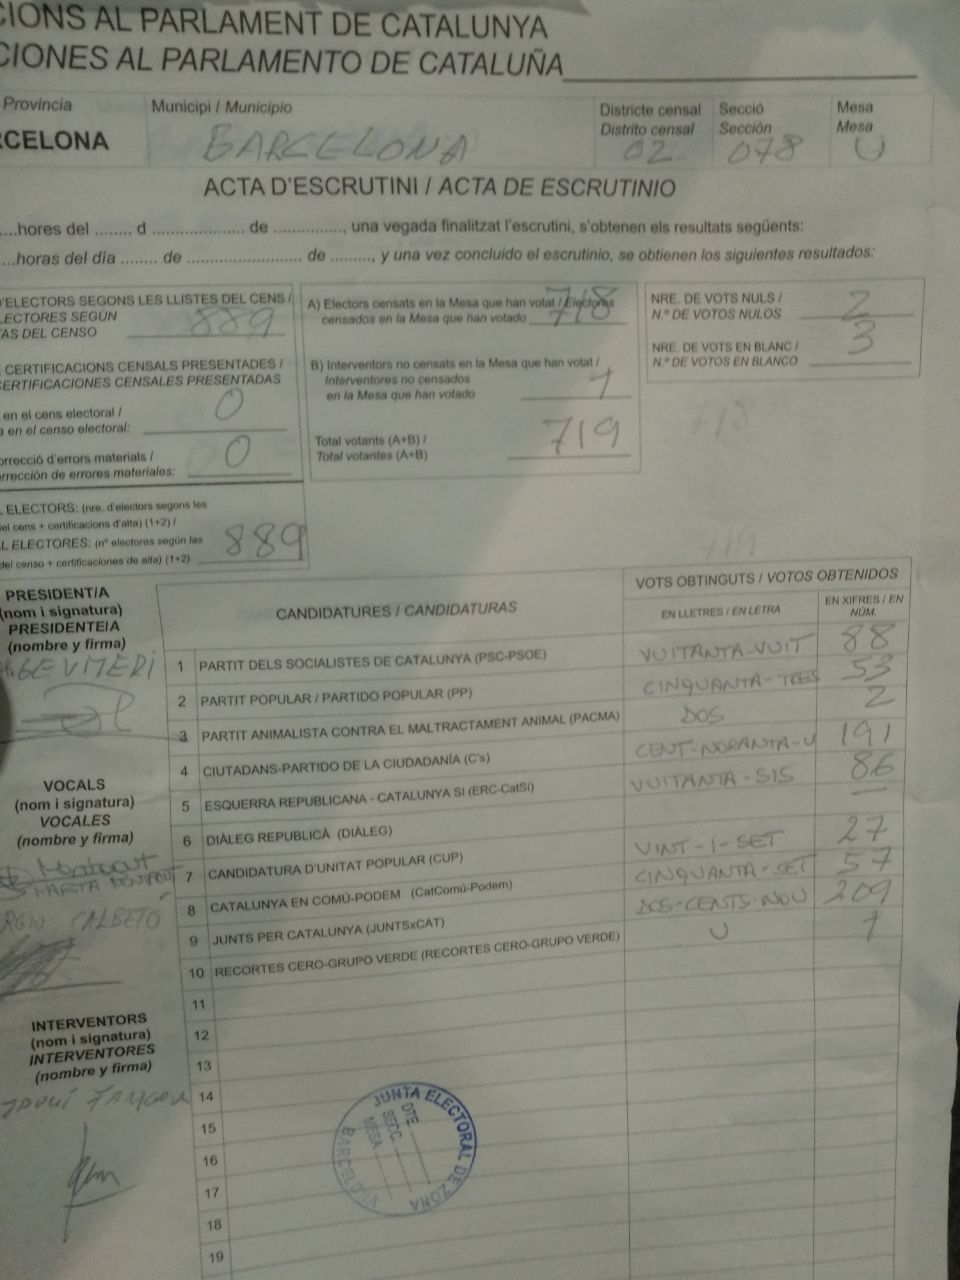 CIONS AL PARLAMENT DE CATALUNYA
CIONES AL PARLAMENTO DE CATALUÑA
Provincia Municipi / Municipio Districte censal Secció Mesa
Distrito censal Sección Mesa
RCELONA BARCELONA 02 078 U
ACTA D'ESCRUTINI / ACTA DE ESCRUTINIO
....hores del ........ d .................... de .............., una vegada finalitzat l'escrutini, s'obtenen els resultats següents:
....horas del día ........ de ........................ de ........., y una vez concluido el escrutinio, se obtienen los siguientes resultados:
'ELECTORS SEGONS LES LLISTES DEL CENS /
LECTORES SEGÚN
AS DEL CENSO 889
CERTIFICACIONS CENSALS PRESENTADES /
CERTIFICACIONES CENSALES PRESENTADAS
en el cens electoral /
a en el censo electoral: 0
orrecció d'errors materials /
rrección de errores materiales: 0
L ELECTORS: (nre. d'electors segons les
el cens + certificacions d'alta) (1+2) /
L ELECTORES: (nº electores según las
del censo + certificaciones de alta) (1+2) 889
A) Electors censats en la Mesa que han votat / Electores
censados en la Mesa que han votado 718
B) Interventors no censats en la Mesa que han votat /
Interventores no censados
en la Mesa que han votado 1
Total votants (A+B) /
Total votantes (A+B) 719
NRE. DE VOTS NULS /
N.º DE VOTOS NULOS 2
NRE. DE VOTS EN BLANC /
N.º DE VOTOS EN BLANCO 3
718
719
PRESIDENT/A
(nom i signatura)
PRESIDENTE/A
(nombre y firma)
VITERI
VOCALS
(nom i signatura)
VOCALES
(nombre y firma)
MARTA
CALBETO
INTERVENTORS
(nom i signatura)
INTERVENTORES
(nombre y firma)
CANDIDATURES / CANDIDATURAS VOTS OBTINGUTS / VOTOS OBTENIDOS
EN LLETRES / EN LETRA EN XIFRES / EN NÚM.
1 PARTIT DELS SOCIALISTES DE CATALUNYA (PSC-PSOE) VUITANTA-VUIT 88
2 PARTIT POPULAR / PARTIDO POPULAR (PP) CINQUANTA-TRES 53
3 PARTIT ANIMALISTA CONTRA EL MALTRACTAMENT ANIMAL (PACMA) DOS 2
4 CIUTADANS-PARTIDO DE LA CIUDADANÍA (C's) CENT-NORANTA-U 191
5 ESQUERRA REPUBLICANA - CATALUNYA SI (ERC-CatSI) VUITANTA-SIS 86
6 DIÀLEG REPUBLICÀ (DIÀLEG) —
7 CANDIDATURA D'UNITAT POPULAR (CUP) VINT-I-SET 27
8 CATALUNYA EN COMÚ-PODEM (CatComú-Podem) CINQUANTA-SET 57
9 JUNTS PER CATALUNYA (JUNTSxCAT) DOS-CENTS-NOU 209
10 RECORTES CERO-GRUPO VERDE (RECORTES CERO-GRUPO VERDE) U 1
11
12
13
14
15
16
17
18
19
JUNTA ELECTORAL DE ZONA
BARCELONA
DTE
SECC.
MESA